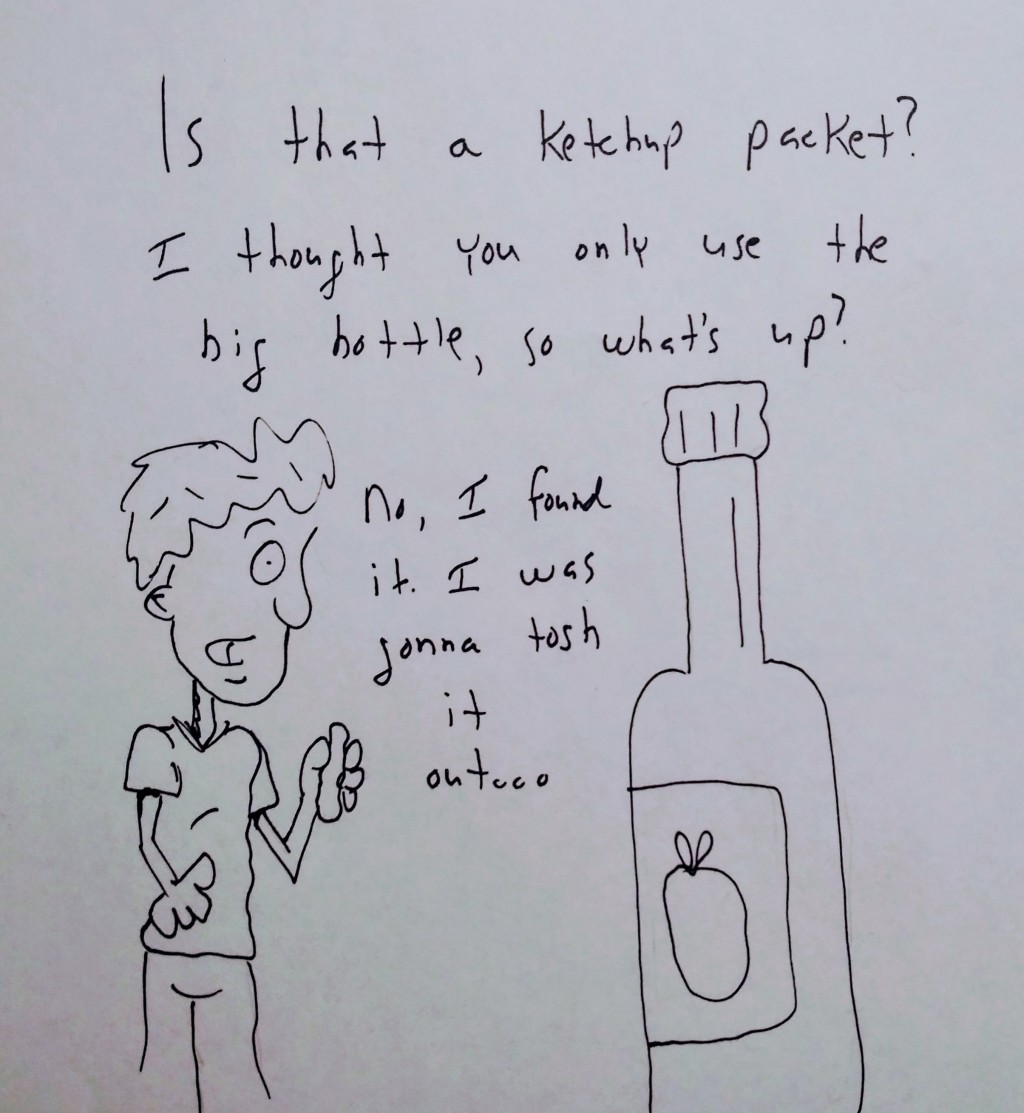 Is that a ketchup packet?
I thought you only use the
big bottle, so what's up?
No, I found
it. I was
gonna tosh
it
out...